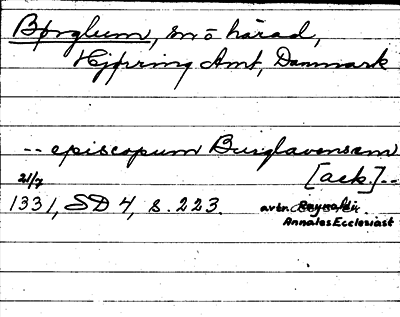 Børglum, sn o härad,
Hjørring Amt, Danmark
-- episcopum Burglavensem
[ack]--
21/7
1331, SD 4, s. 223. avtr. Raynaldi
Annales Ecclesiast